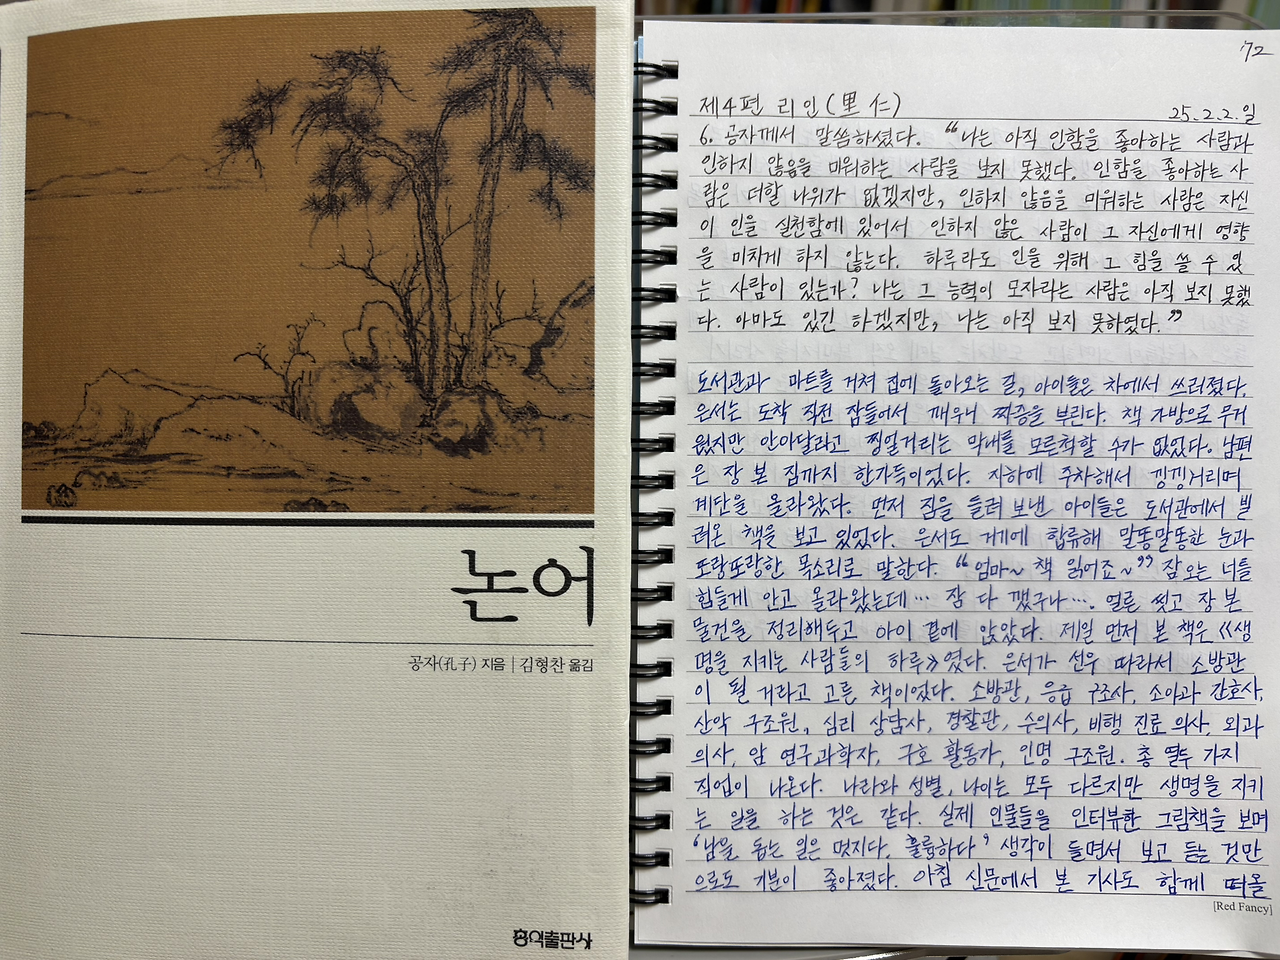 논어
공자(孔子) 지음 | 김형찬 옮김
홍익출판사
'72
제4편 리인(里仁)
25.2.2.일
6. 공자께서 말씀하셨다. "나는 아직 인함을 좋아하는 사람과
인하지 않음을 미워하는 사람을 보지 못했다. 인함을 좋아하는 사
람은 더할 나위가 없겠지만, 인하지 않음을 미워하는 사람은 자신
이 인을 실천함에 있어서 인하지 않은 사람이 그 자신에게 영향
을 미치게 하지 않는다. 하루라도 인을 위해 그 힘을 쓸 수 있
는 사람이 있는가? 나는 그 능력이 모자라는 사람은 아직 보지 못했
다. 아마도 있긴 하겠지만, 나는 아직 보지 못하였다."
도서관과 마트를 거쳐 집에 돌아오는 길, 아이들은 차에서 쓰러졌다.
은서는 도착 직전 잠들어서 깨우니 짜증을 부린다. 책 가방으로 무거
웠지만 안아달라고 찡얼거리는 막내를 모른척할 수가 없었다. 남편
은 장 본 짐까지 한가득이었다. 지하에 주차해서 낑낑거리며
계단을 올라왔다. 먼저 짐을 들려 보낸 아이들은 도서관에서 빌
려온 책을 보고 있었다. 은서도 거기에 합류해 말똥말똥한 눈과
또랑또랑한 목소리로 말한다. "엄마~ 책 읽어죠~" 잠오는 너를
힘들게 안고 올라왔는데… 잠 다 깼구나…. 얼른 씻고 장 본
물건을 정리해두고 아이 곁에 앉았다. 제일 먼저 본 책은 《생
명을 지키는 사람들의 하루》였다. 은서가 선우 따라서 소방관
이 될 거라고 고른 책이었다. 소방관, 응급 구조사, 소아과 간호사,
산악 구조원, 심리 상담사, 경찰관, 수의사, 비행 진료 의사, 외과
의사, 암 연구과학자, 구호 활동가, 인명 구조원. 총 열두 가지
직업이 나온다. 나라와 성별, 나이는 모두 다르지만 생명을 지키
는 일을 하는 것은 같다. 실제 인물들을 인터뷰한 그림책을 보며
'남을 돕는 일은 멋지다. 훌륭하다' 생각이 들면서 보고 듣는 것만
으로도 기분이 좋아졌다. 아침 신문에서 본 기사도 함께 떠올
[Red Fancy]